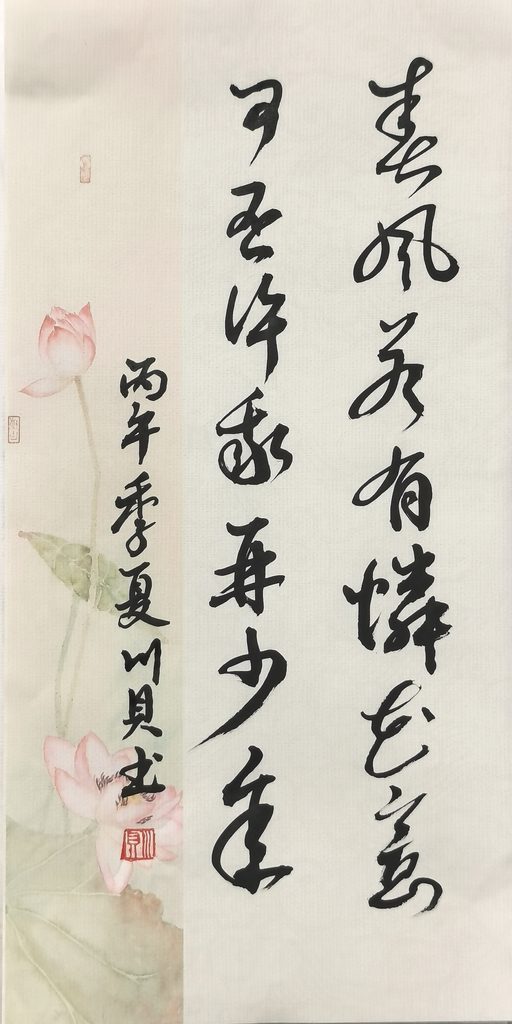 春风若有憐花意
可否许我再少年
丙午季夏川贝书
川貝